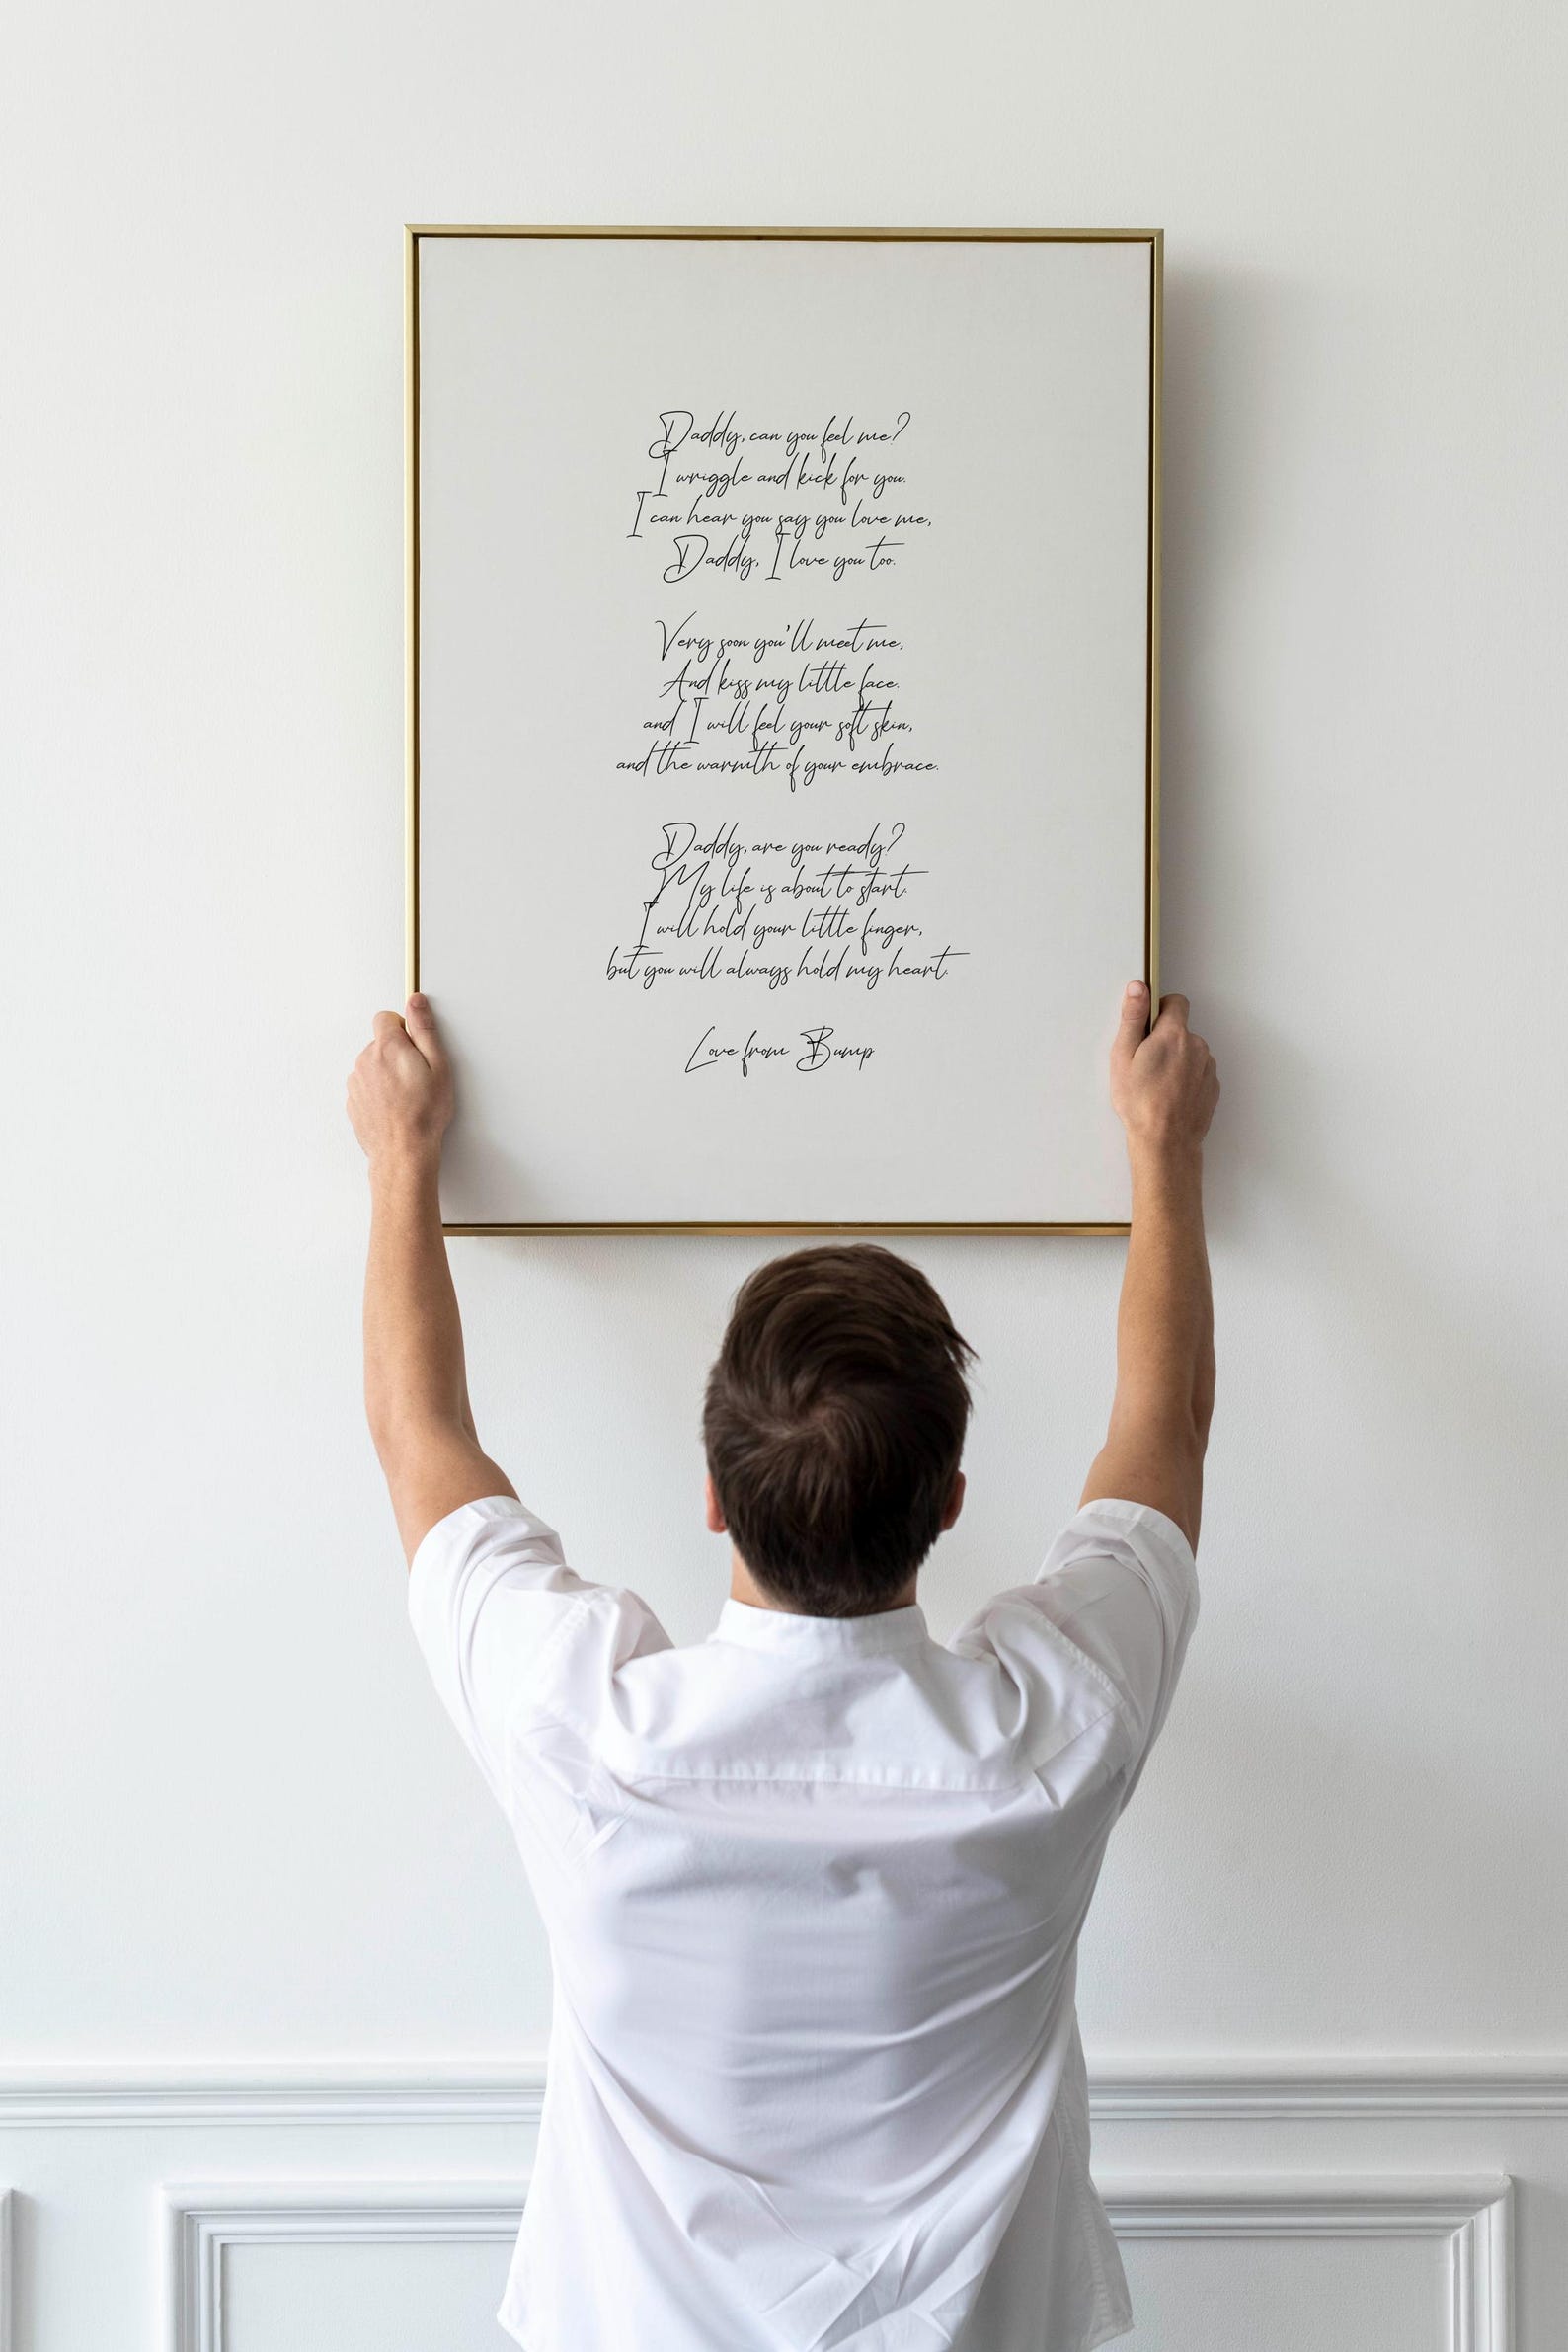 Daddy, can you feel me?
I wriggle and kick for you.
I can hear you say you love me,
Daddy, I love you too.
Very soon you'll meet me,
And kiss my little face.
and I will feel your soft skin,
and the warmth of your embrace.
Daddy, are you ready?
My life is about to start.
I will hold your little finger,
but you will always hold my heart.
Love from Bump